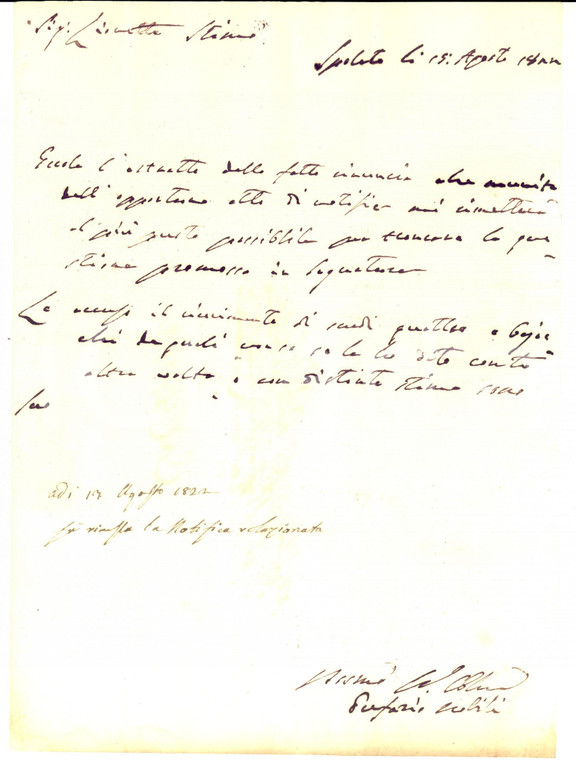 Sig: Stimo
Spoleto li 15: Agosto 18
Eccole l'estratto della fatta rinuncia che munito
dell'opportuno atto di notifica mi rimetterà
al più presto possibile per troncare la que
stione promossa in Segnatura
Le accuso il ricevimento di scudi quattro e bajoc
chi de quali non so se le ho dato conto
altra volta e con distinta stima sono
Suo
adi 17 Agosto 1822
fù rimessa la Notifica relazionata